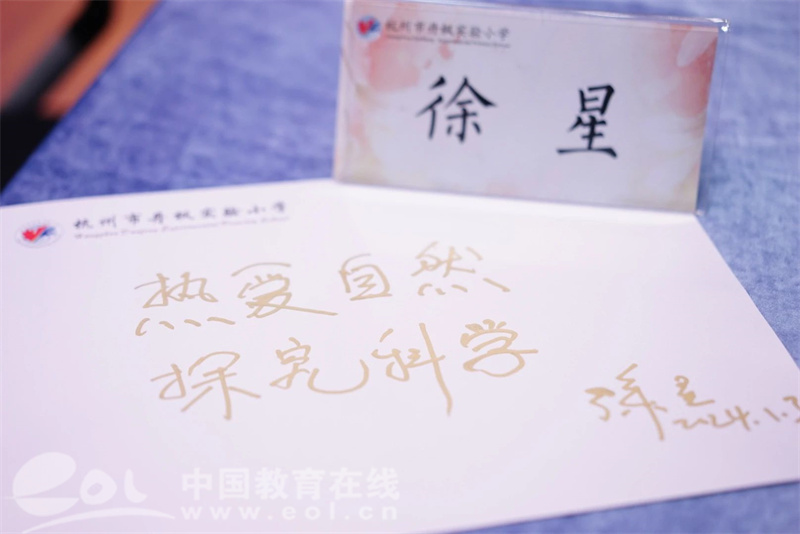 杭州市丹枫实验小学
徐星
杭州市丹枫实验小学
热爱自然
探究科学
徐星
2024.1.
中国教育在线
eol
www.eol.cn